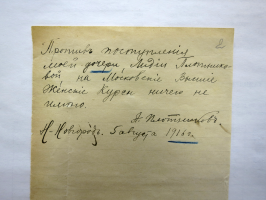 2
Противъ поступленія
моей дочери Лидіи Плотнико-
вой на Московскіе Высшіе
Женскіе Курсы ничего не
имѣю.
А. Плотниковъ.
Н-Новгородъ. 5 августа 1916 г.